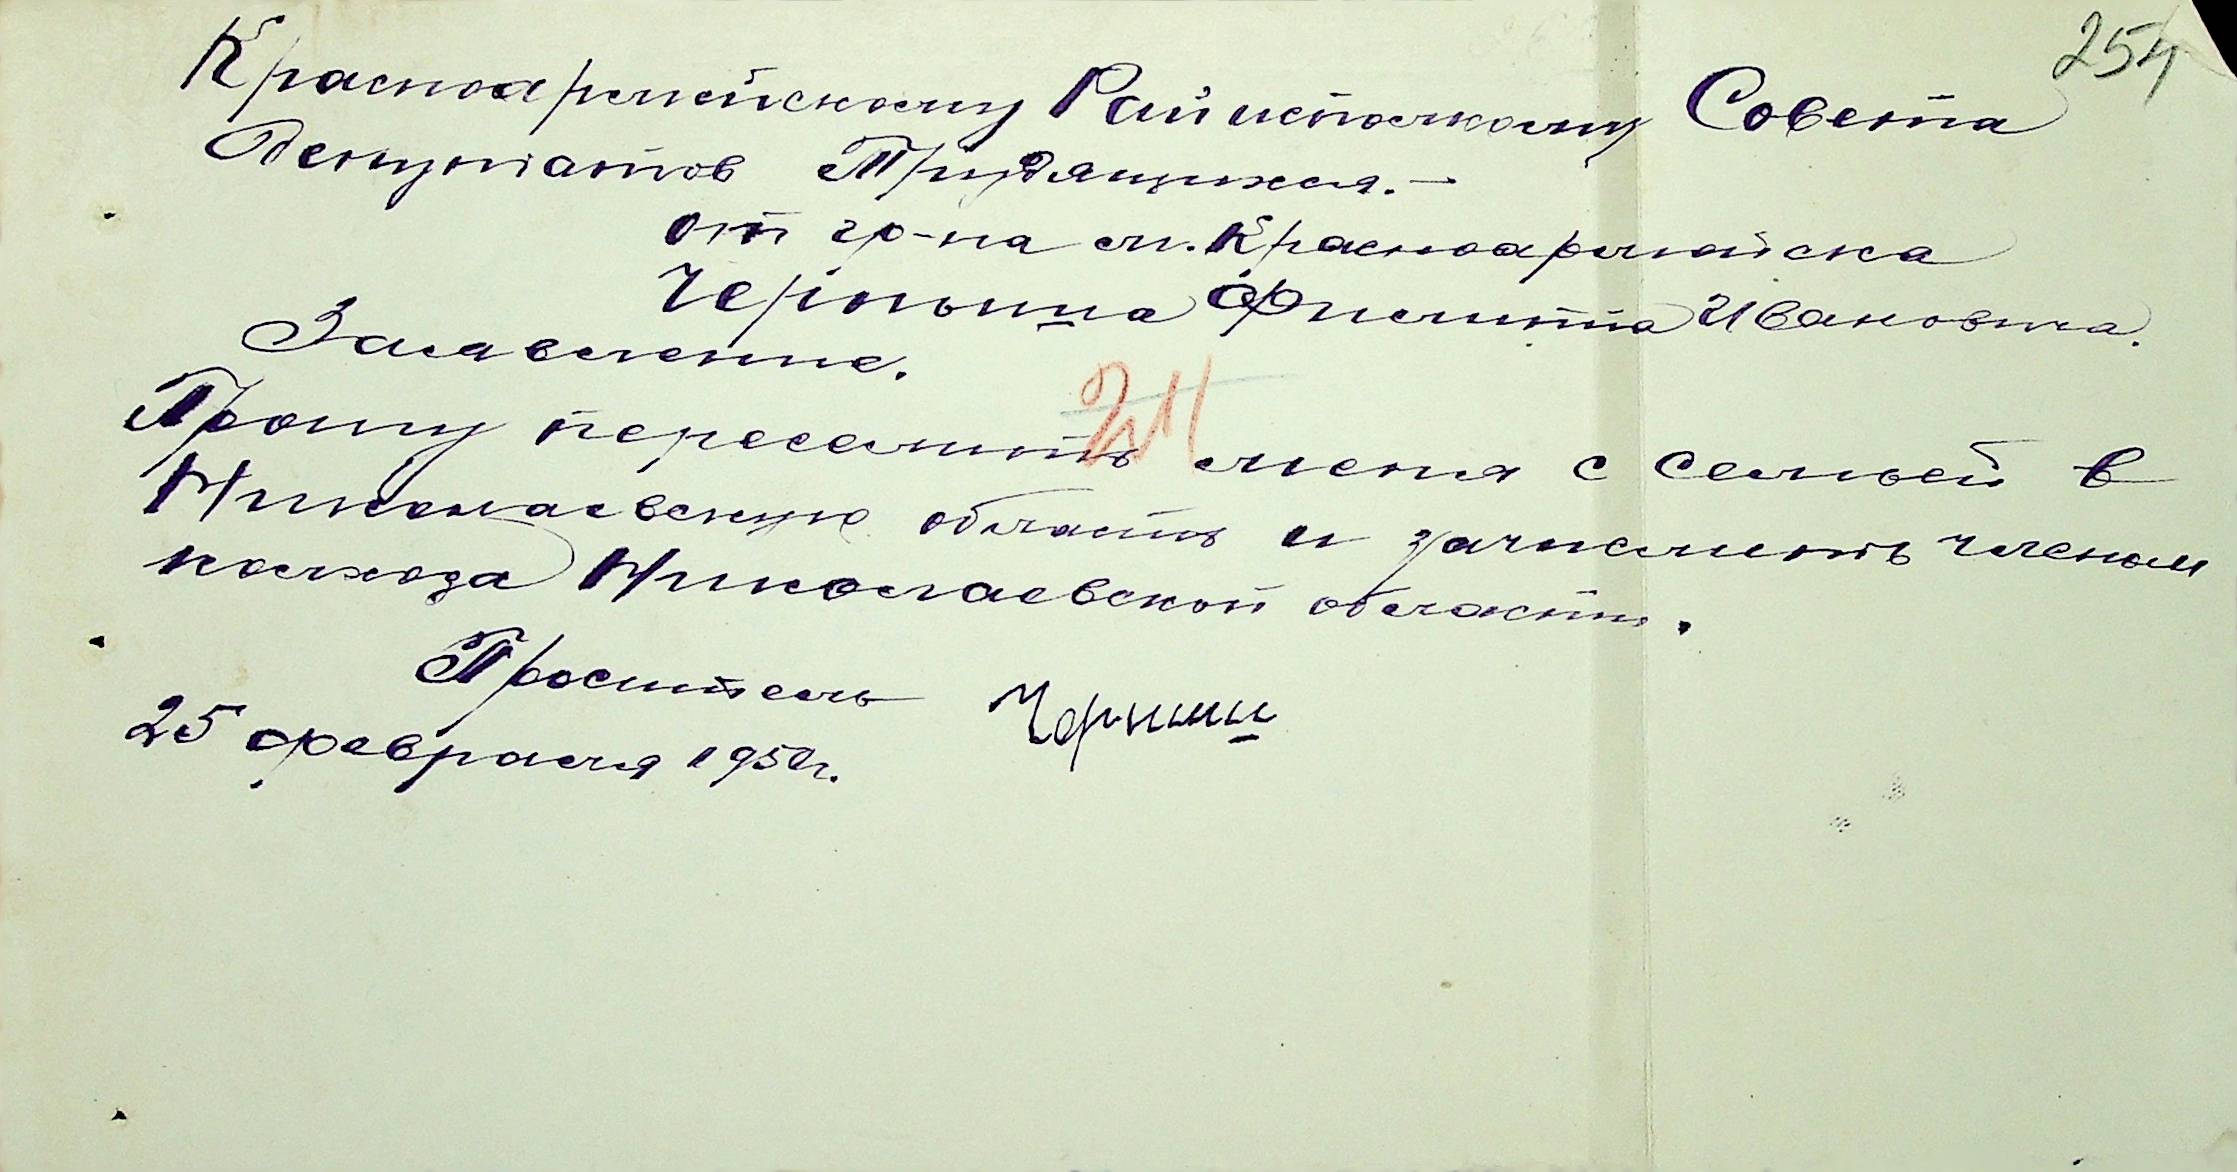 254
Красноармейскому Райисполкому Совета
Депутатов Трудящихся.-
от гр-на м. Красноармейска
Филиппа Ивановича.
Заявление.
Прошу переселить меня с семьей в
Николаевскую область и зачислить членом
колхоза Николаевской области.
Проситель
25 февраля 1950г.